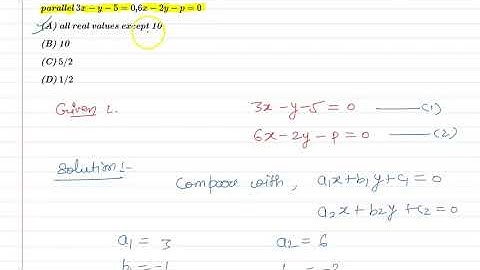 parallel 3x − y − 5 = 0,6x − 2y − p = 0
(A) all real values except 10
(B) 10
(C) 5/2
(D) 1/2
Given :.
3x − y − 5 = 0 ——— (1)
6x − 2y − p = 0 ——— (2)
Solution :-
Compare with, a₁x + b₁y + c₁ = 0
a₂x + b₂y + c₂ = 0
a₁ = 3 a₂ = 6
b₁ = −1 b₂ = −2